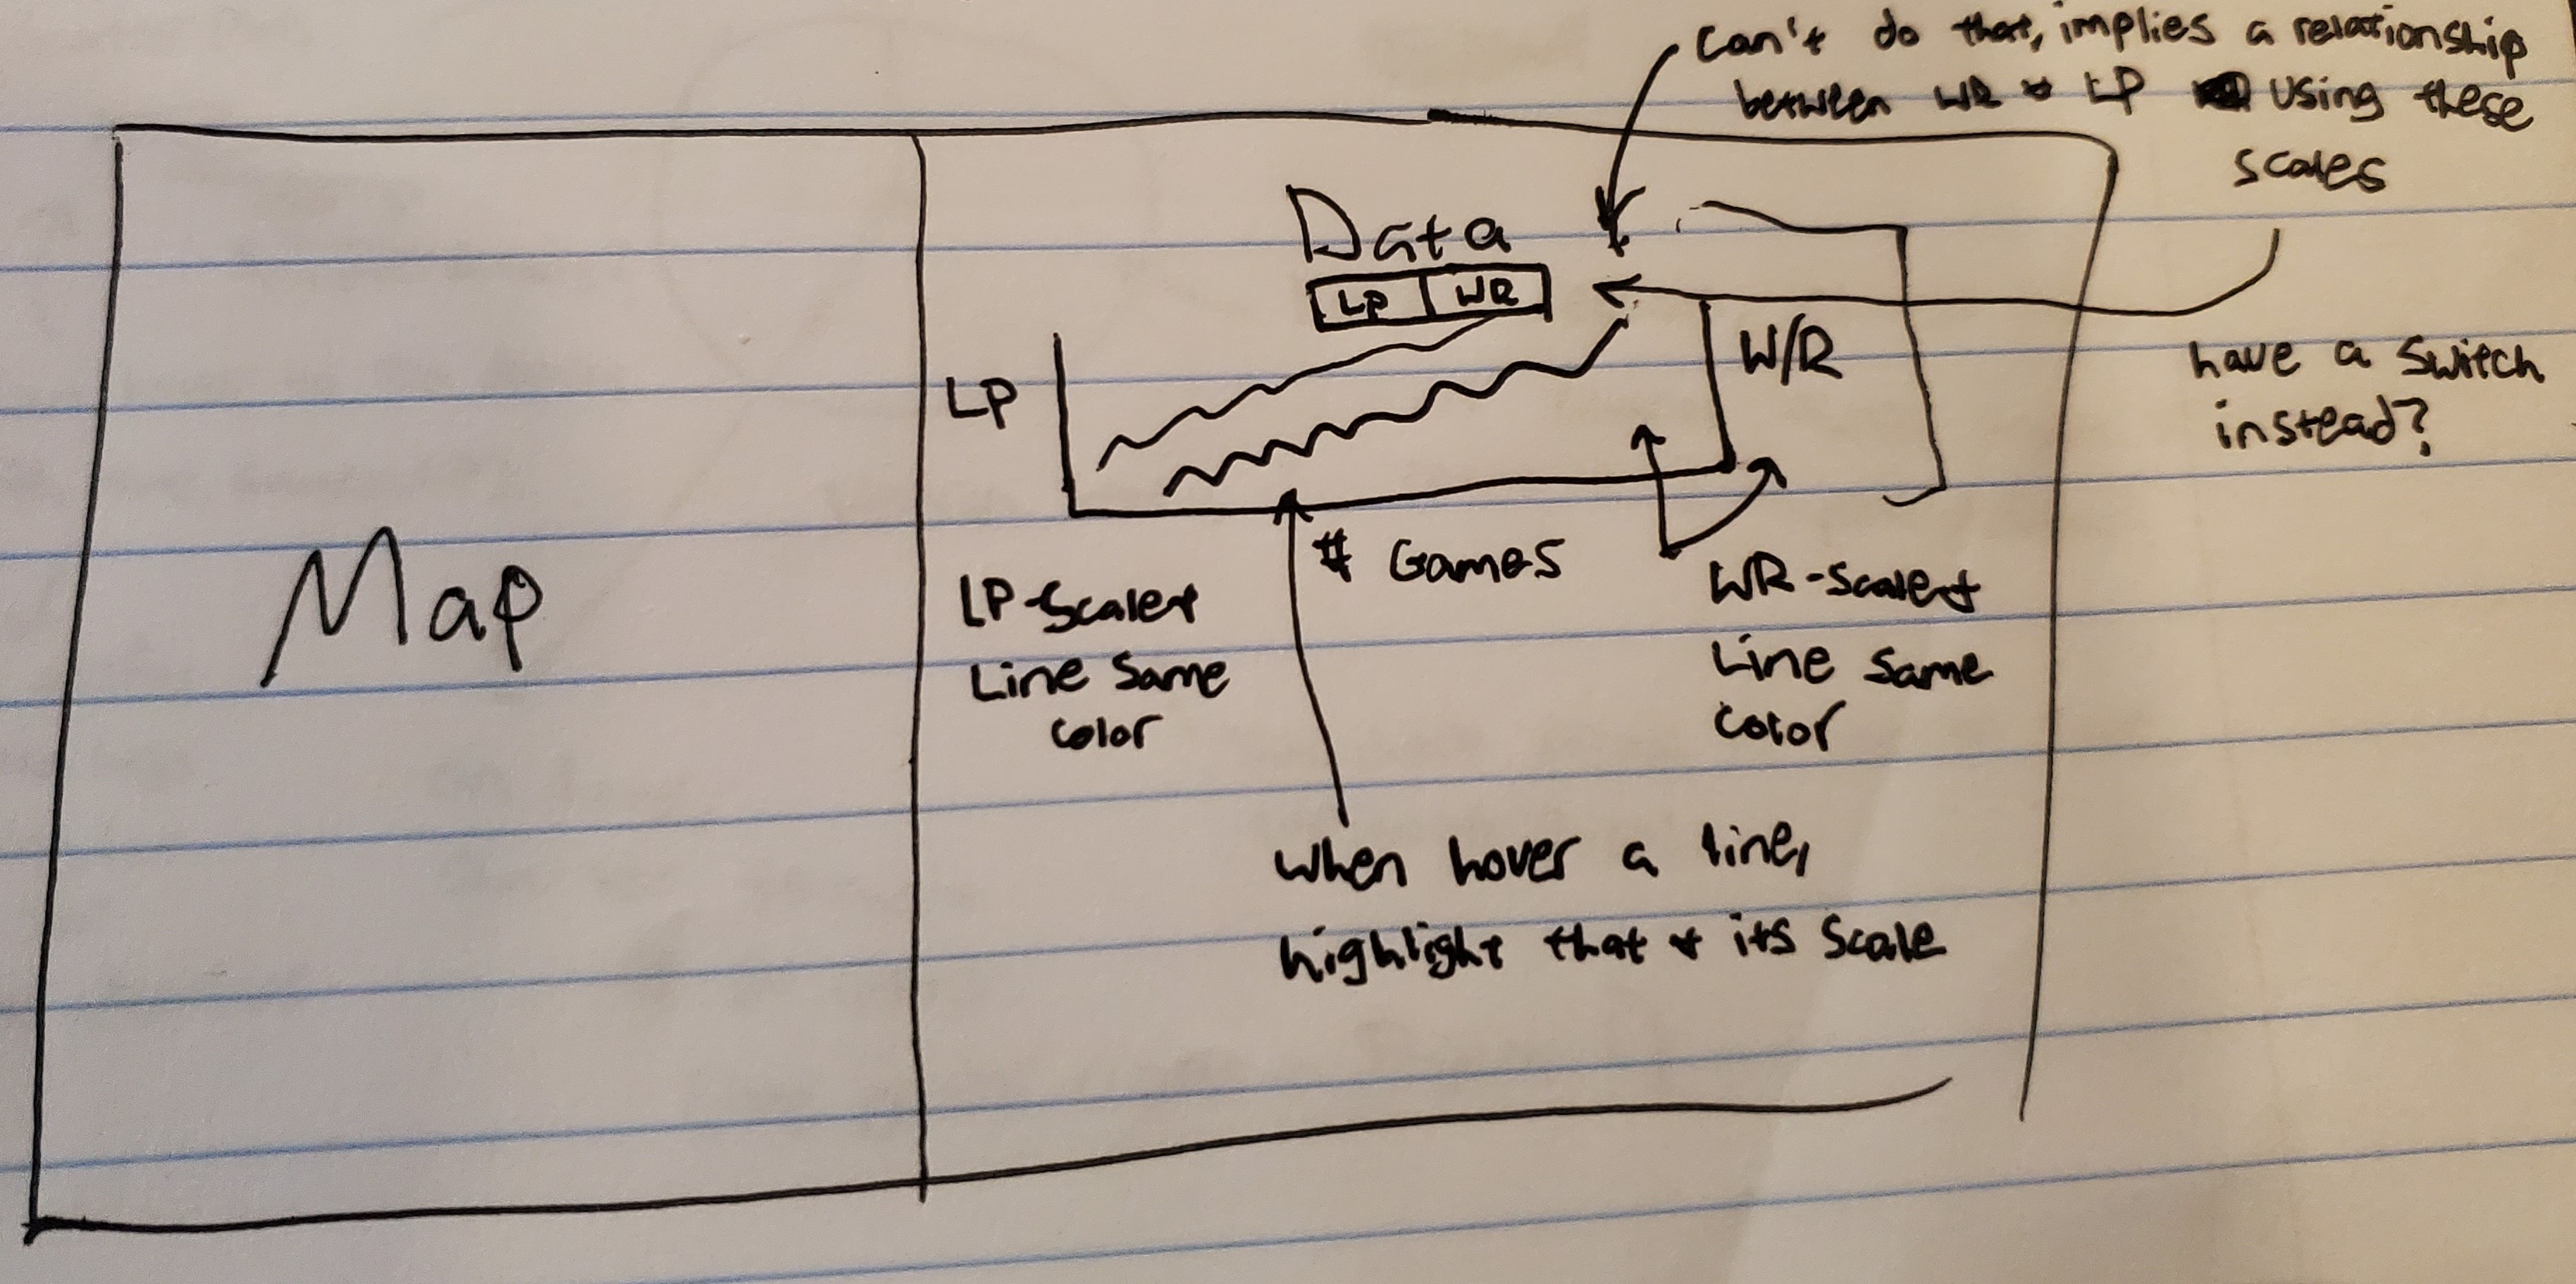 Can't do that, implies a relationship
between WR & LP using these
scales
Data
LP WR
have a switch
instead?
LP
W/R
# Games
LP-Scale &
Line Same
Color
WR-Scale &
Line Same
Color
Map
When hover a line,
highlight that & its scale